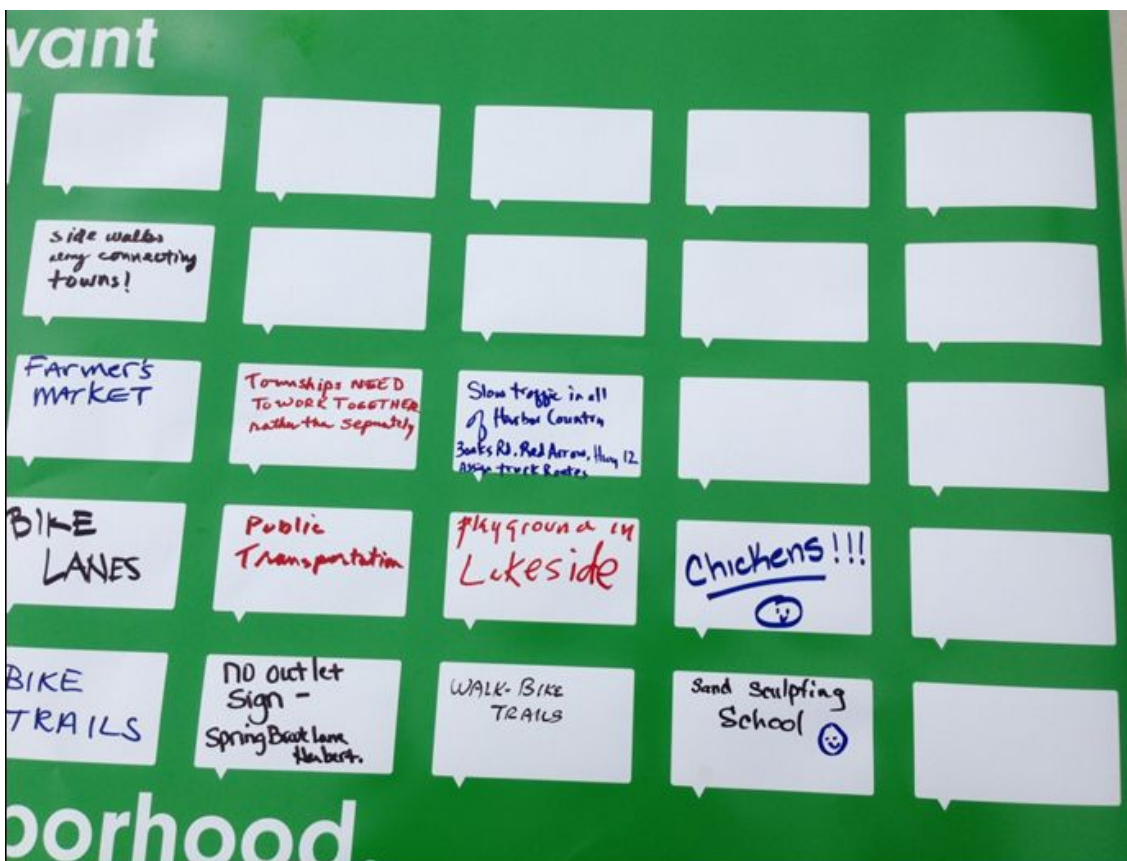 vant
side walks
along connecting
towns!
Farmer's
MARKET
Townships NEED
TO WORK TOGETHER
rather than seprately
Slow traffic in all
of Harbor Country
3oaks Rd. Red Arrow, Hwy 12
Assign truck Routes
BIKE
LANES
Public
Transportation
Playground in
Lakeside
Chickens!!!
BIKE
TRAILS
no outlet
Sign -
Spring lane
WALK-BIKE
TRAILS
Sand Sculpting
School
borhood.